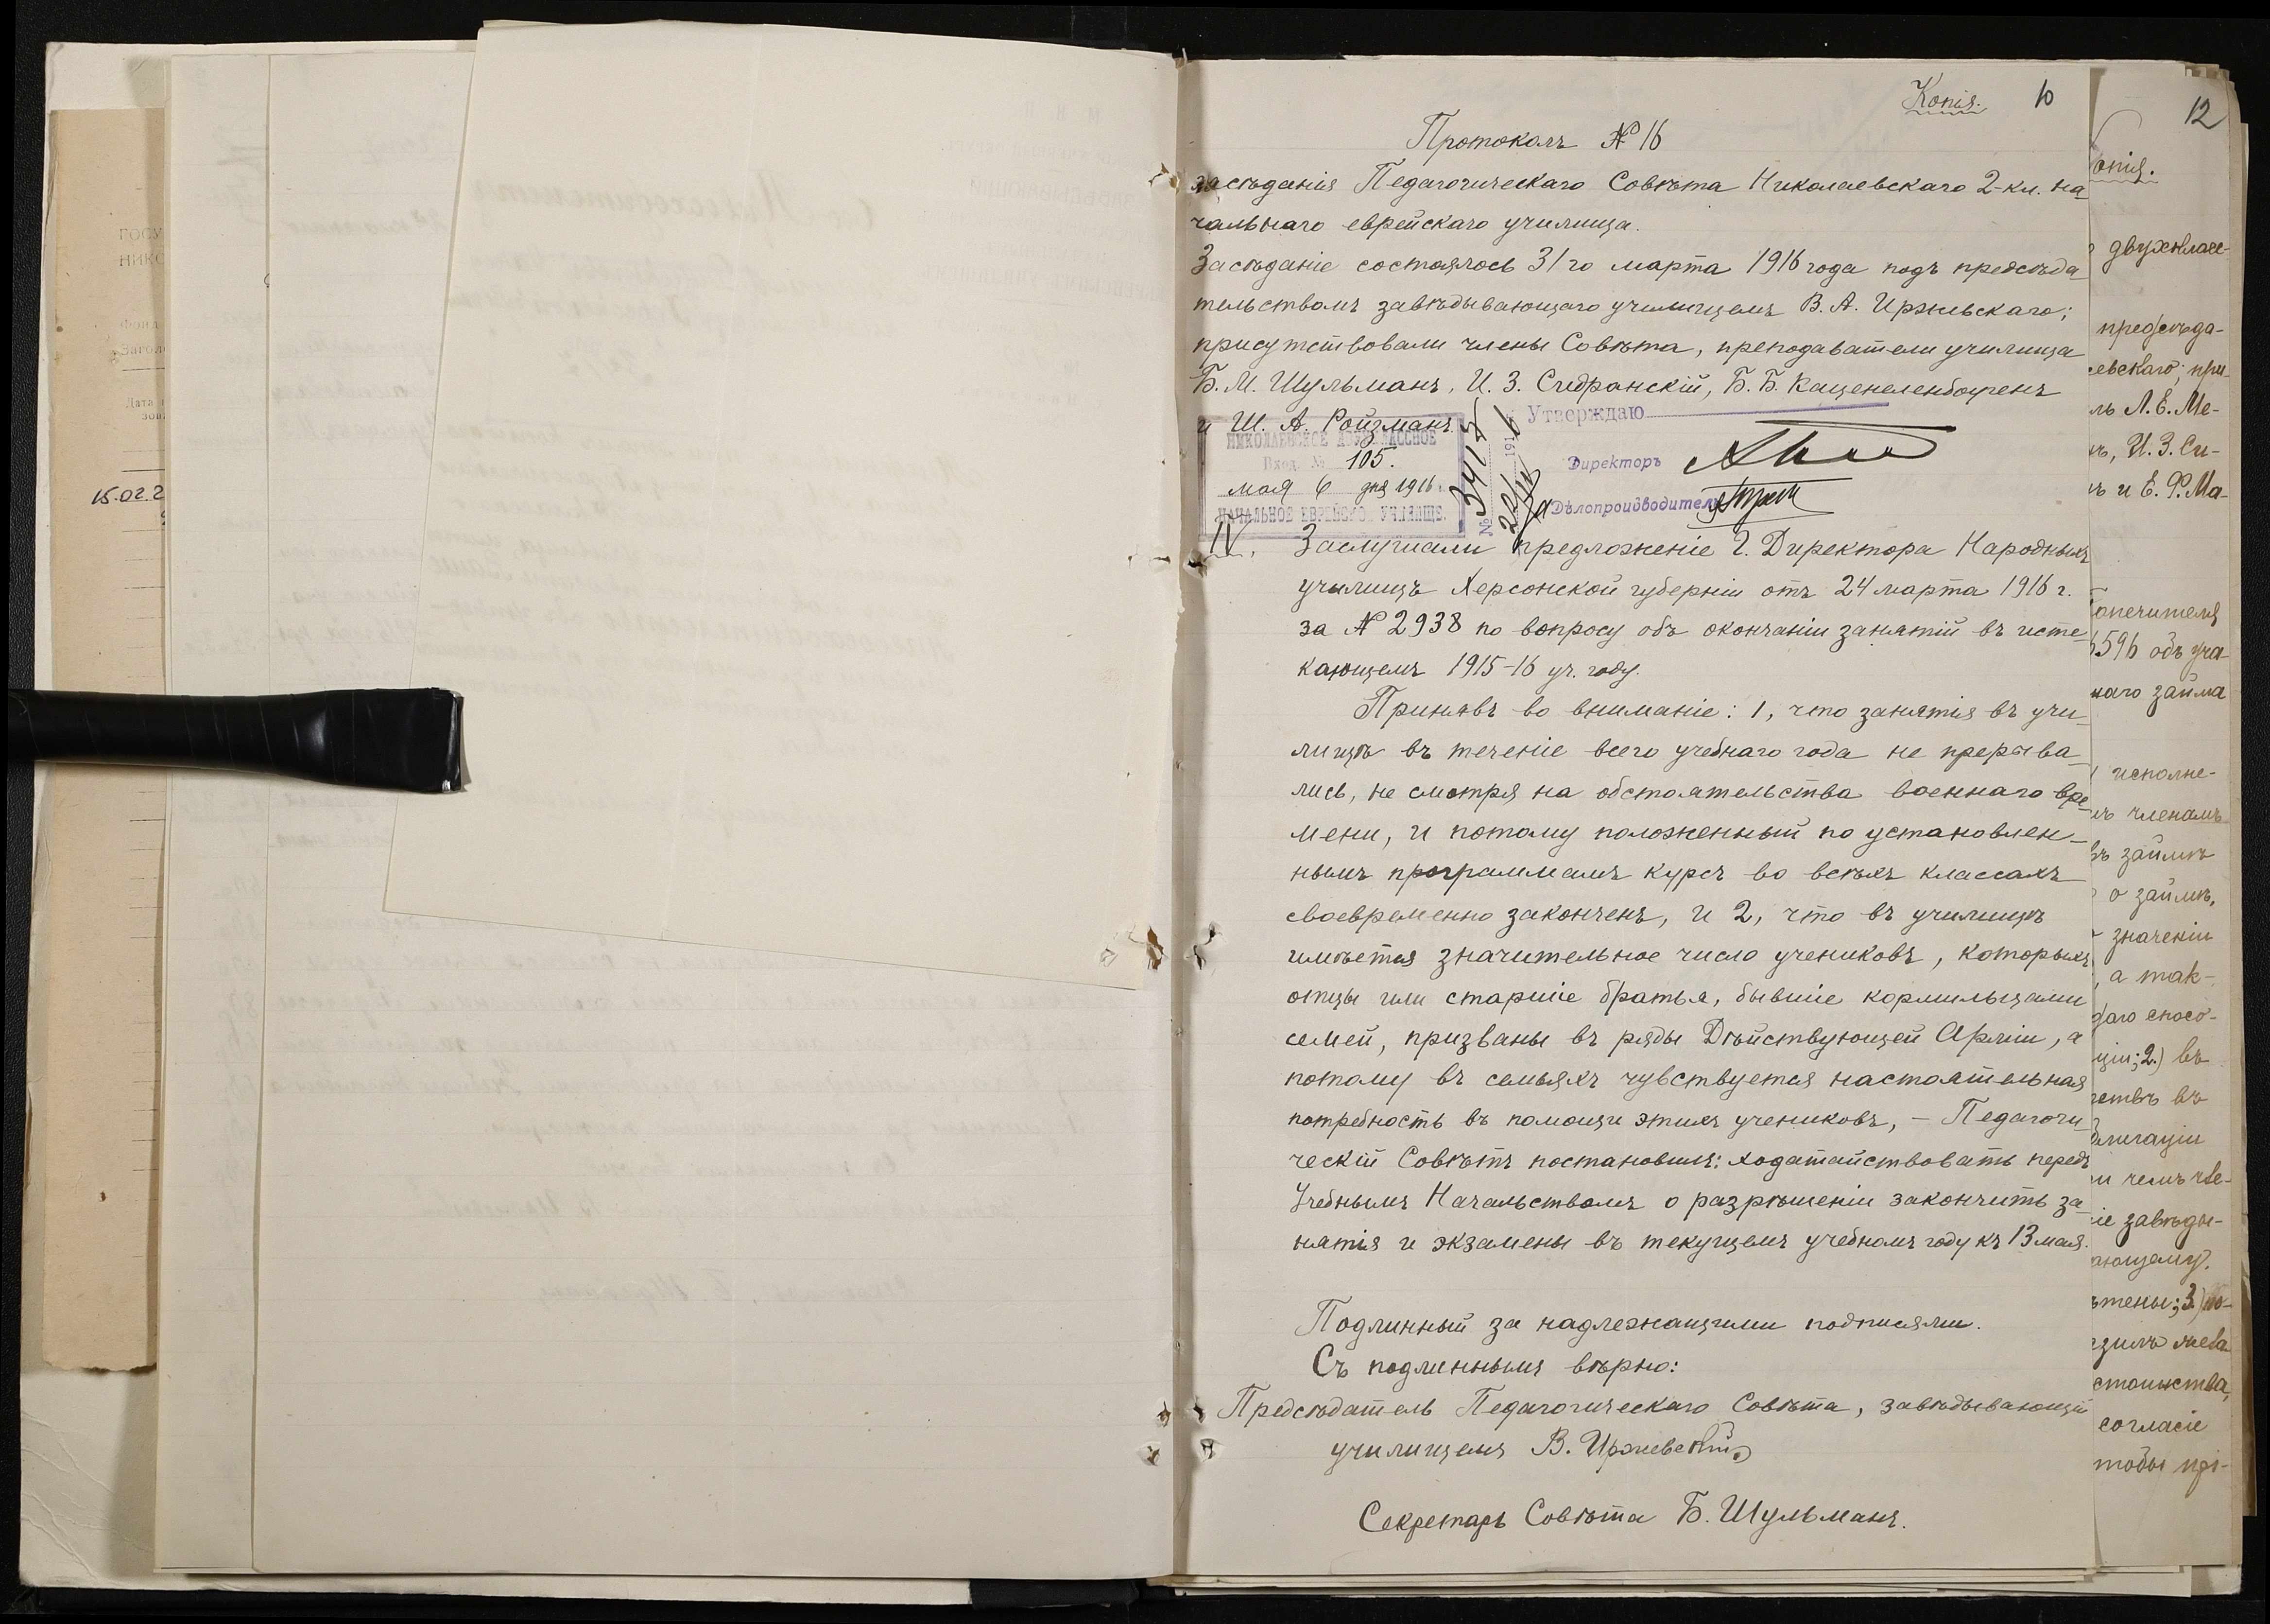 ГОСУ
НИКО
Фонд
Загол
Дата
зов
15.02.2
Копія. 10
Протоколъ № 16
засѣданія Педагогическаго Совѣта Николаевскаго 2-кл. на-
чальнаго еврейскаго училища.
Засѣданіе состоялось 31го марта 1916 года подъ предсѣда-
тельствомъ завѣдывающаго училищемъ В. А. Иржевскаго;
присутствовали члены Совѣта, преподаватели училища
Б. М. Шульманъ, И. З. Сидранскій, Б. Б. Каценеленбогенъ
и Ш. А. Ройзманъ.
НИКОЛАЕВСКОЕ ДВУХКЛАССНОЕ
Вход. № 105.
мая 6 дня 1916
НАЧАЛЬНОЕ ЕВРЕЙСКОЕ УЧИЛИЩЕ.
№ 3417
22/IV 1916
Утверждаю
Директоръ
Дѣлопроизводитель
IV. Заслушали предложеніе Г. Директора Народныхъ
училищъ Херсонской губерніи отъ 24 марта 1916 г.
за № 2938 по вопросу объ окончаніи занятій въ исте-
кающемъ 1915-16 уч. году.
Принявъ во вниманіе: 1, что занятія въ учи-
лищѣ въ теченіе всего учебнаго года не прерыва-
лись, не смотря на обстоятельства военнаго вре-
мени, и потому положенный по установлен-
нымъ программамъ курсъ во всѣхъ классахъ
своевременно законченъ, и 2, что въ училищѣ
имѣется значительное число учениковъ, которыхъ
отцы или старшіе братья, бывшіе кормильцами
семей, призваны въ ряды Дѣйствующей Арміи, а
потому въ семьяхъ чувствуется настоятельная
потребность въ помощи этихъ учениковъ, – Педагоги-
ческій Совѣтъ постановилъ: ходатайствовать передъ
Учебнымъ Начальствомъ о разрѣшеніи закончить за-
нятія и экзамены въ текущемъ учебномъ году къ 13 мая.
Подлинный за надлежащими подписями.
Съ подлиннымъ вѣрно:
Предсѣдатель Педагогическаго Совѣта, завѣдывающій
училищемъ В. Иржевскій
Секретарь Совѣта Б. Шульманъ.
12
опія.
двухкласс-
предсѣда-
евскаго; при-
ль Л. Е. Ме-
нъ, И. З. Си-
ъ и Е. Ф. Ма-
опечителя
6596 объ уча-
наго займа
исполне-
членамъ
въ займѣ
о займѣ,
значеніи
, а так-
даго спосо-
ціи; 2) въ
ствъ въ
блигаціи
и чемъ чле-
іе завѣды-
ающему.
ѣтены; 3) по-
стоинства,
согласіе
тобы прі-